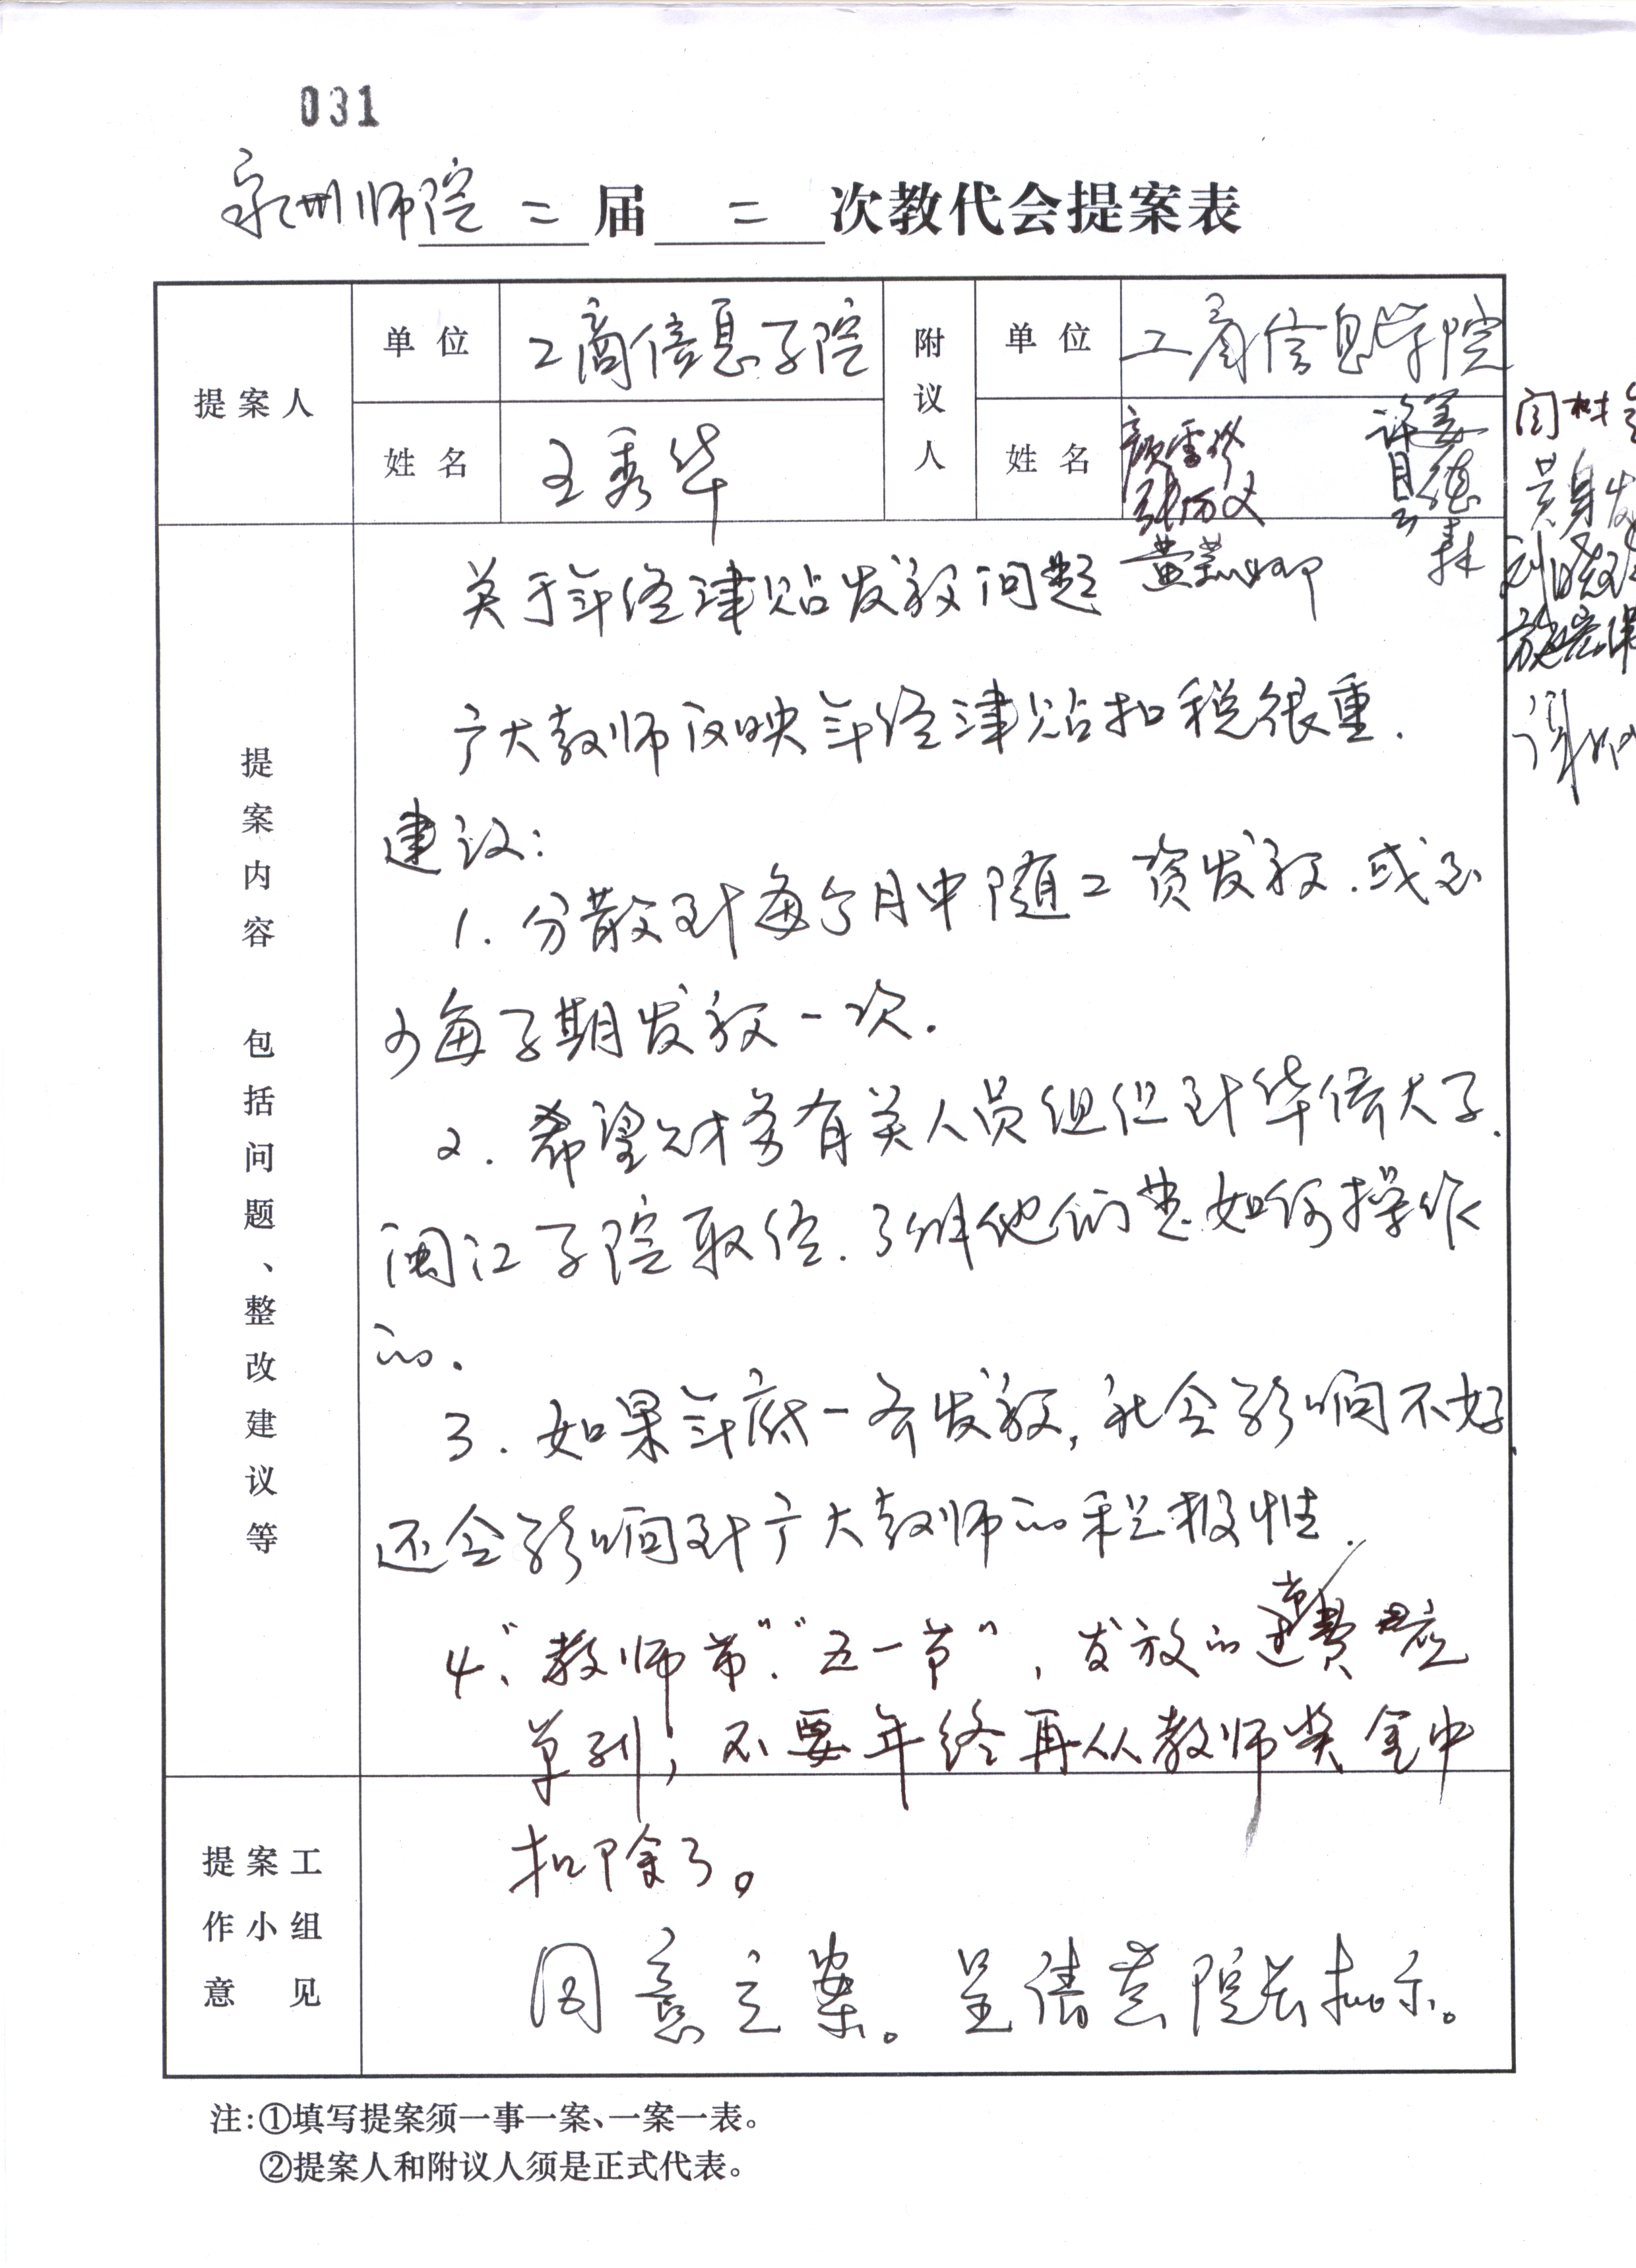 031
泉州师院 二 届 二 次教代会提案表
提案人
单位
工商信息学院
附议人
单位
工商信息学院
姓名
王秀华
姓名
张历文
许月云
姜德森
提案内容 包括问题、整改建议等
关于年终津贴发放问题
广大教师反映年终津贴扣税很重.
建议:
1. 分散到每个月中随工资发放.或至
少每学期发放一次.
2. 希望财务有关人员组织到华侨大学.
闽江学院取经.了解他们是如何操作
的.
3. 如果年底一齐发放,社会影响不好.
还会影响到广大教师的积极性.
4、"教师节"."五一节",发放的过节费应
单列;不要年终再从教师奖金中
扣除了。
提案工
作小组
意 见
同意立案。呈请黄院长批示。
注:①填写提案须一事一案、一案一表。
②提案人和附议人须是正式代表。